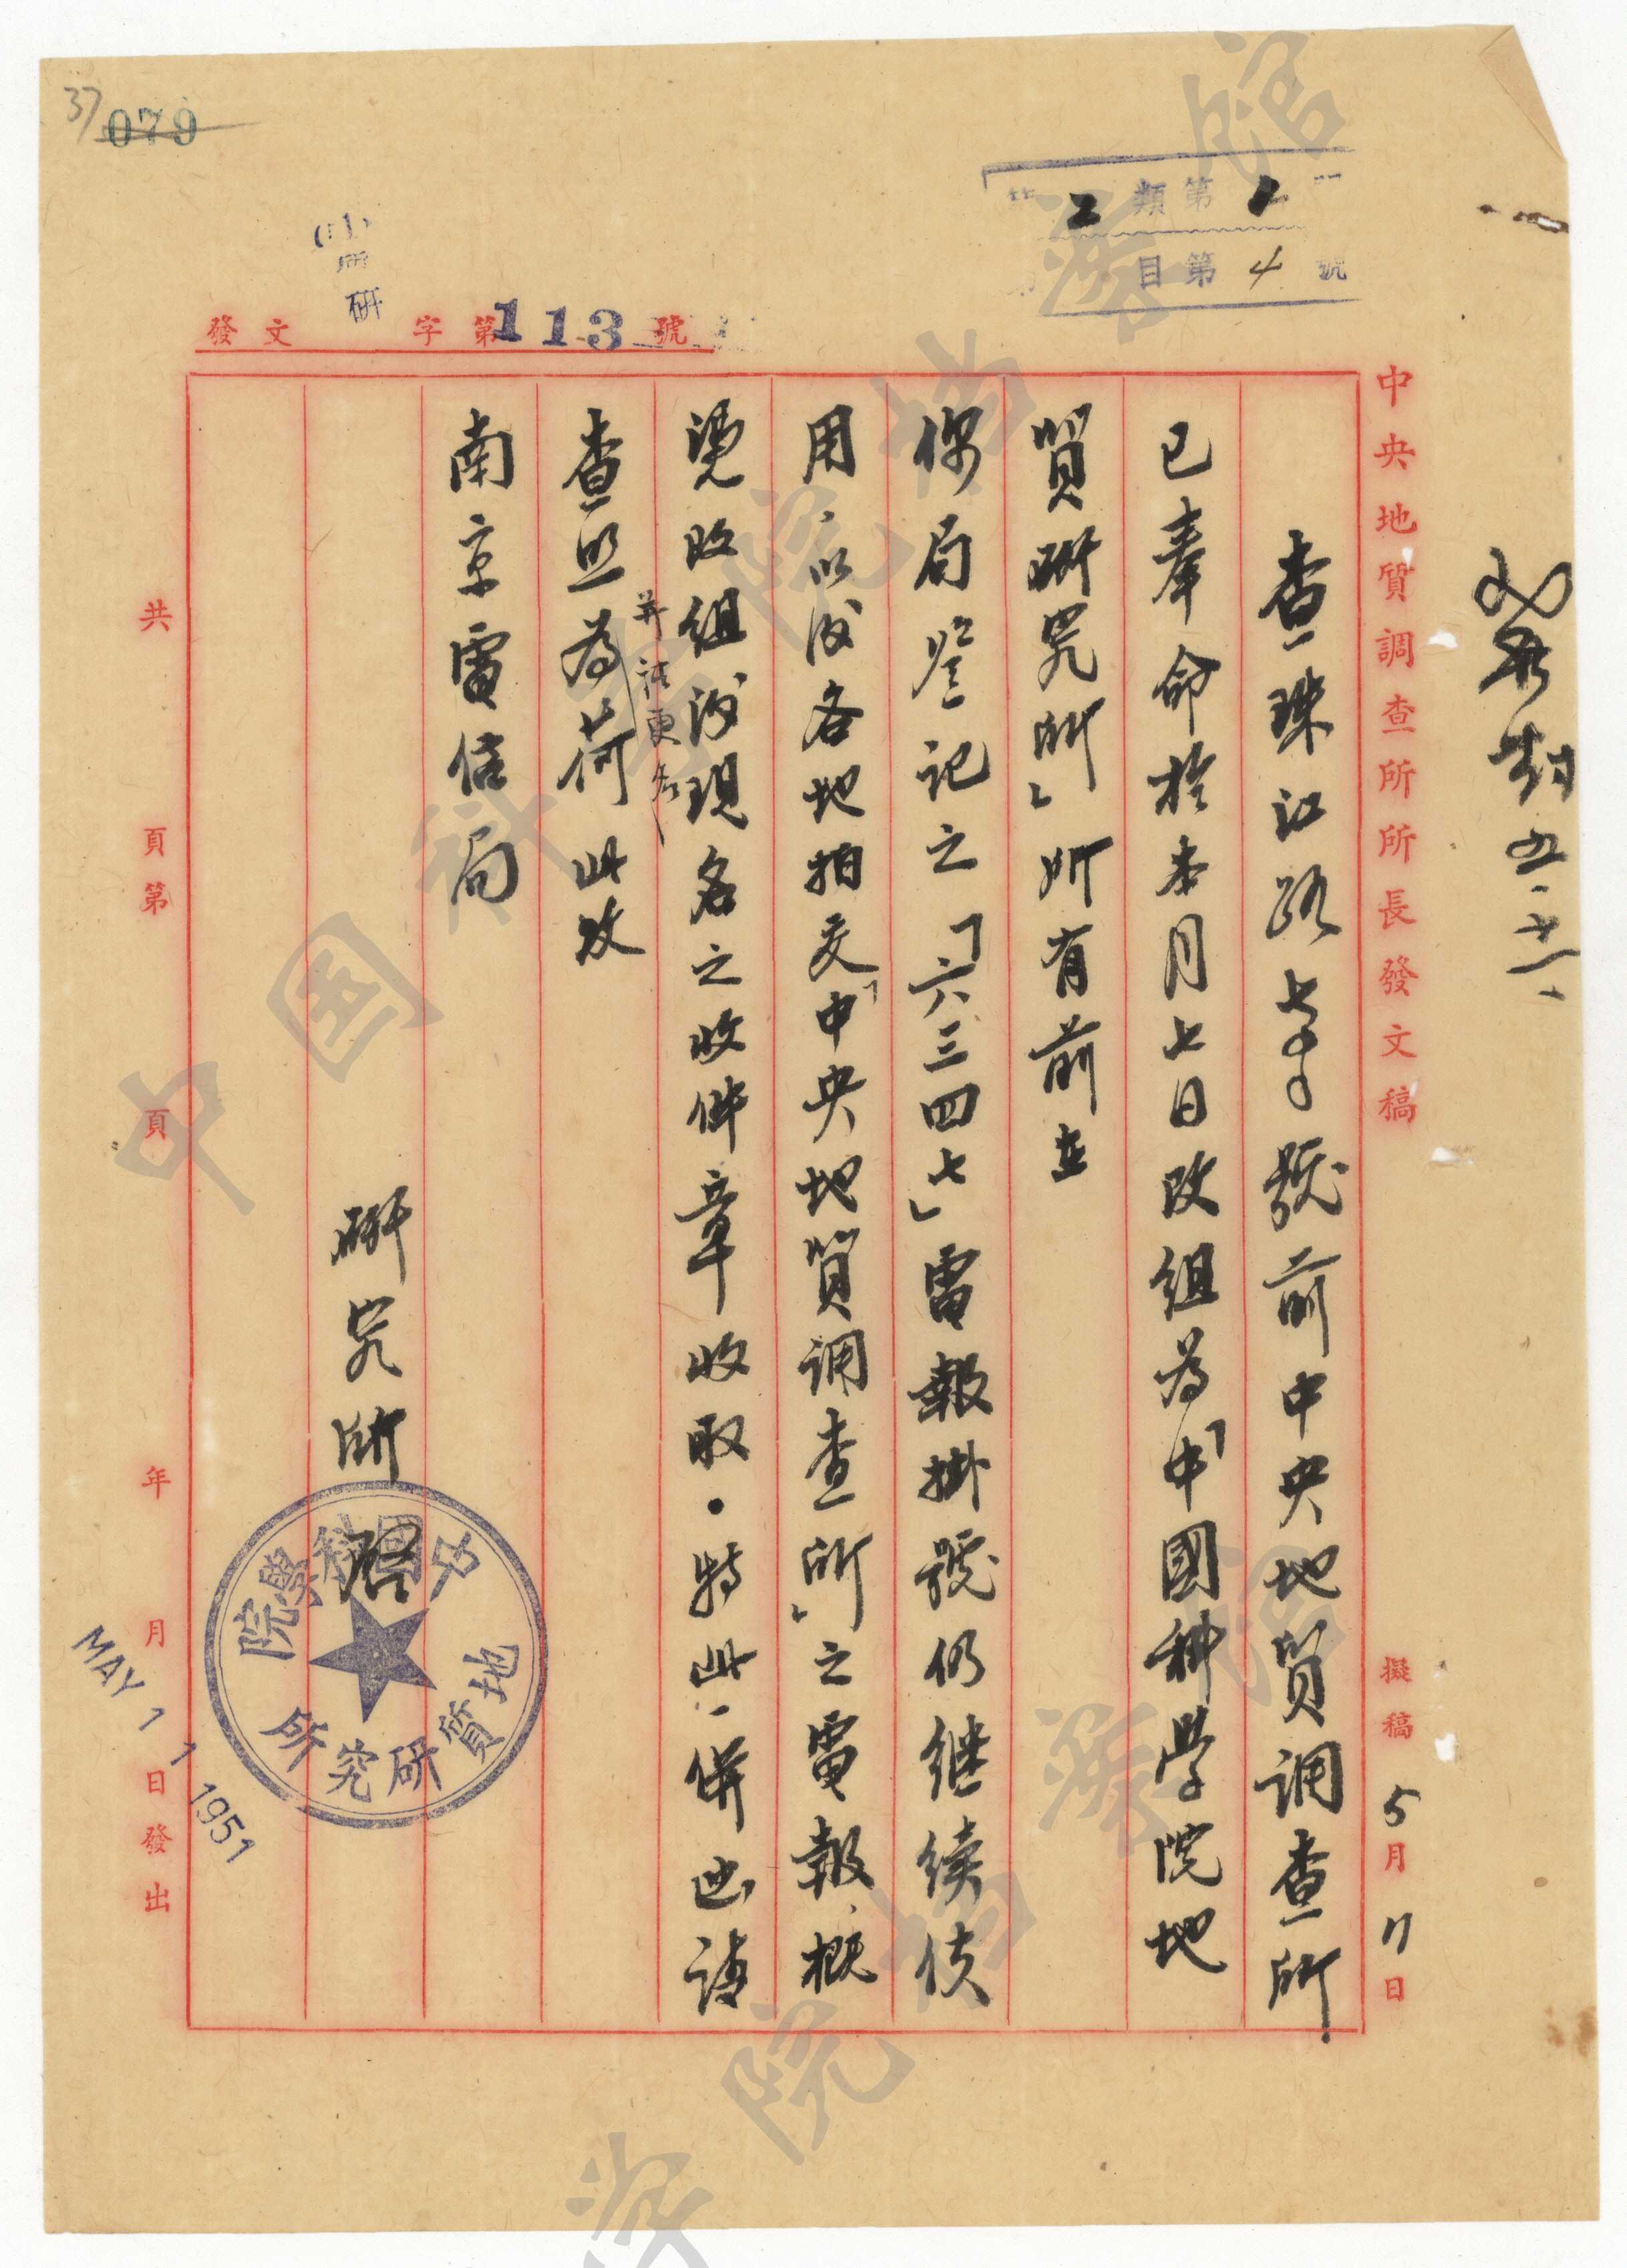 37
079
第2類第1
目第4號
發文 字第113號
中央地質調查所所長發文稿 擬稿5月11日
查珠江路七〇〇號前中央地質調查所
已奉命於本月七日改組為「中國科學院地
質研究所」所有前在
你局登記之「六三四七」電報掛號仍繼續使
用,以後各地拍交「中央地質調查所」之電報概
憑改組後現名之收件章收取.特此一併函請
查照為荷 此致
并請更名
南京電信局
研究所 啓
中國科學院
地質研究所
共 頁第 頁 年 月 日發出
MAY 11 1951
中国科学院档案馆
学院档案馆